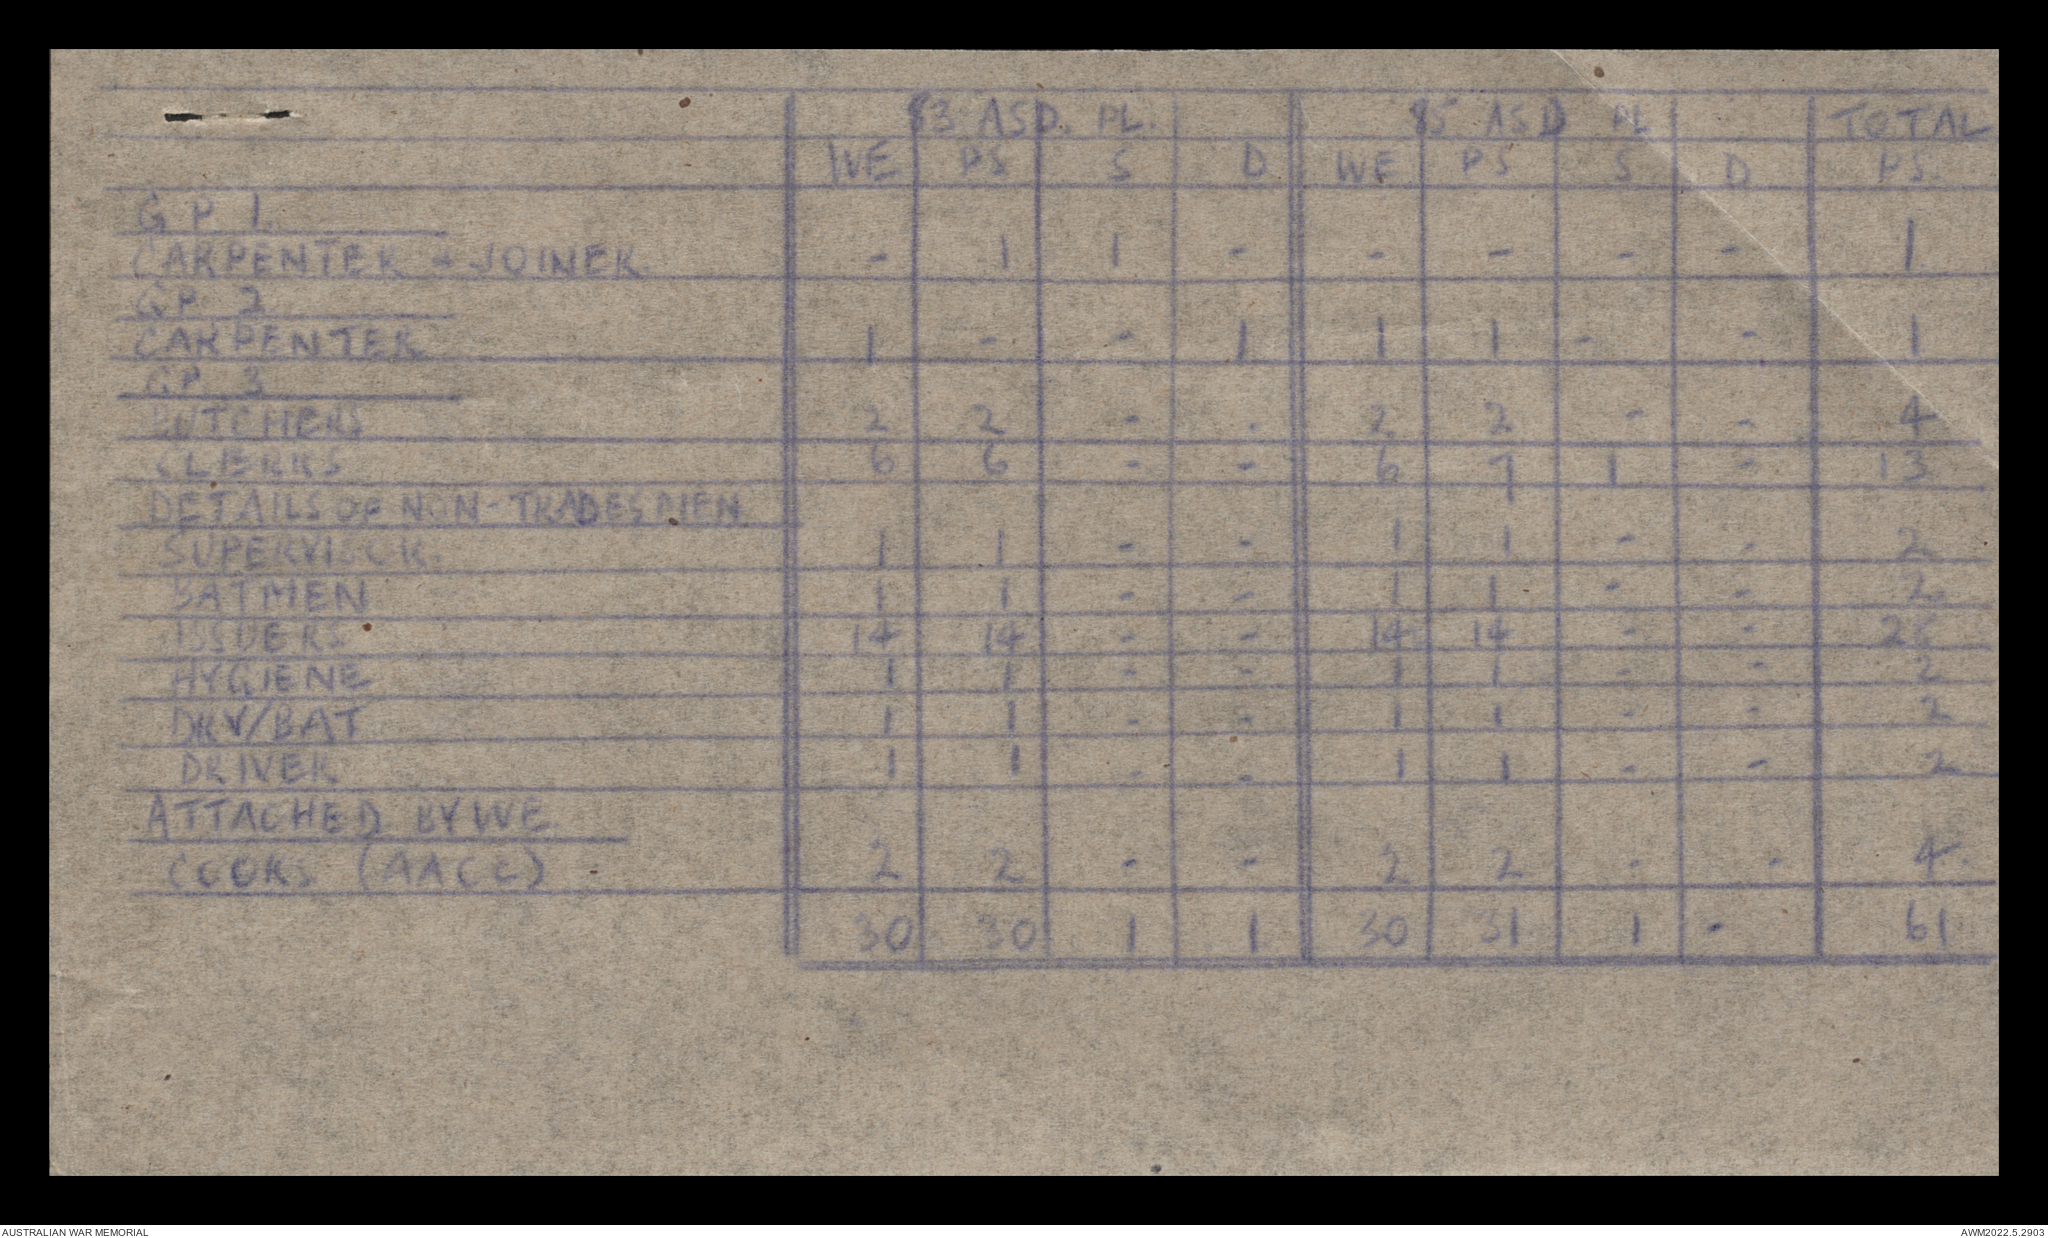 83 ASD. PL. 85 ASD PL TOTAL
WE PS S D WE PS S D PS.
GP 1.
CARPENTER & JOINER - 1 1 - - - - - 1
GP 2
CARPENTER 1 - - 1 1 1 - - 1
GP 3
BUTCHERS 2 2 - - 2 2 - - 4
CLERKS 6 6 - - 6 7 1 - 13
DETAILS OF NON-TRADESMEN
SUPERVISOR. 1 1 - - 1 1 - - 2
BATMEN 1 1 - - 1 1 - - 2.
ISSUERS 14 14 - - 14 14 - - 28
HYGIENE 1 1 - - 1 1 - - 2
DRV/BAT 1 1 - - 1 1 - - 2
DRIVER 1 1 - - 1 1 - - 2
ATTACHED BY WE.
COOKS (AACC) 2 2 - - 2 2 - - 4.
30 30 1 1 30 31 1 - 61
AUSTRALIAN WAR MEMORIAL AWM2022.5.2903